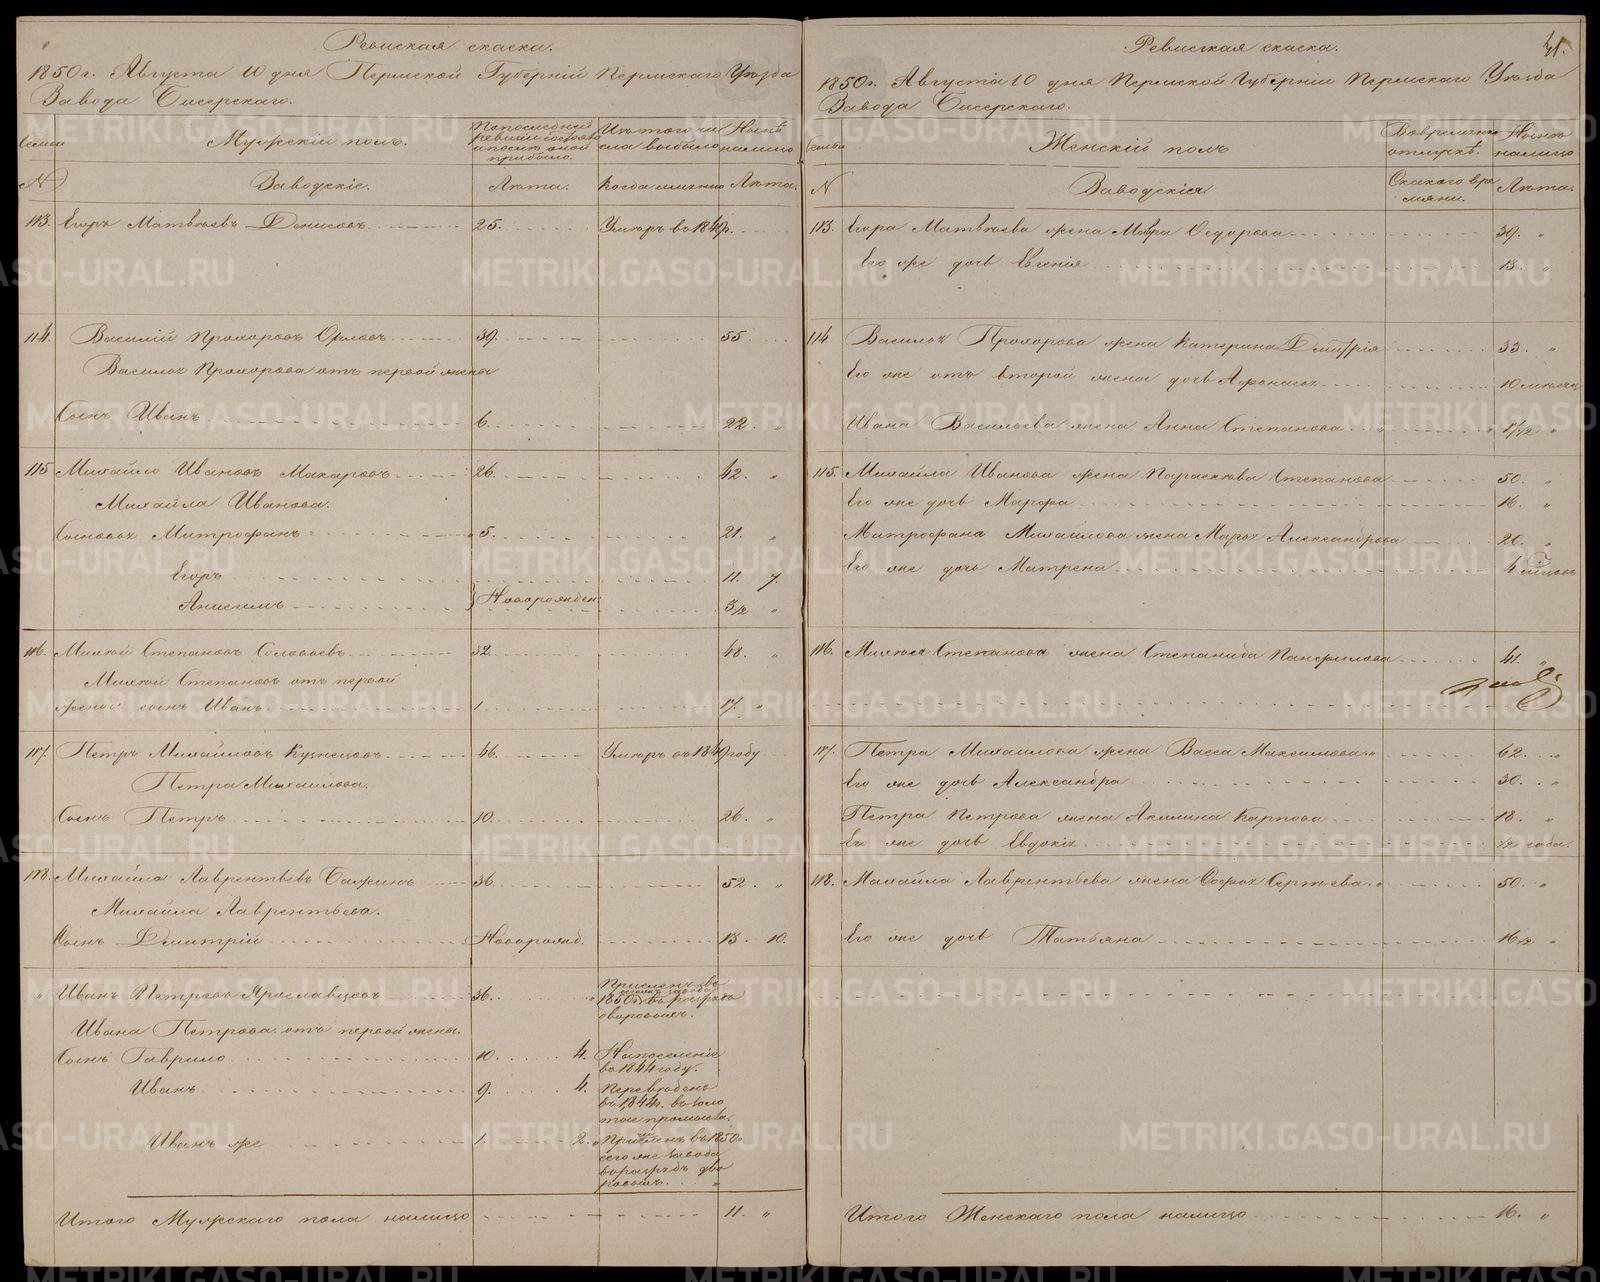 Ревиская скаска.
1850г. Августа 10 дня Пермской Губернiи Пермскаго Уѣзда
Завода Бисерскаго.
Семьи
Мужескiй полъ.
По последней ревизiи состояло и после оной прибыло.
Изъ того числа выбыло
Нынѣ на лицо
№
Заводскiе.
Лѣта.
Когда именно
Лѣта.
113. Егоръ Матвѣевъ Денисовъ 25. Умеръ въ 1849г.
114. Василiй Прохоровъ Орловъ 39. 55
Василья Прохорова отъ первой жены
Сынъ Иванъ 6. 22 "
115 Михайло Ивановъ Макаровъ 26. 42. "
Михайла Иванова.
Сыновья Митрофанъ 5. 21. "
Егоръ 11. 7.
Анисимъ Новорожден: 3/12 "
116. Михей Степановъ Соловьевъ 32. 48. "
Михей Степановъ отъ первой
жены сынъ Иванъ 1 17. "
117. Петръ Михайловъ Кузнецовъ 46. Умеръ въ 1849 году
Петра Михайлова.
Сынъ Петръ 10. 26. "
118. Михайло Лаврентьевъ Бажинъ 36. 52. "
Михайла Лаврентьева.
Сынъ Дмитрiй Новорожд. 13. 10.
" Иванъ Петровъ Ярославцовъ 36.
1850г. въ разрядъ
дворовыхъ.
Ивана Петрова отъ первой жены.
Сынъ Гаврило 10. 4. На поселенiе
въ 1844 году.
Иванъ 9. 4. Переведенъ
въ 1844г. въ золо
тые промысла.
Иванъ же 1. 2. Причисленъ въ 1850г.
сего же завода
въ разрядъ дво
ровыхъ. "
Итого Мужескаго пола налицо 11. "
Ревиская скаска.
1850г. Августа 10 дня Пермской Губернiи Пермскаго Уѣзда
Завода Бисерскаго.
Семьи
Женскiй полъ
Во временной отлучкѣ.
Нынѣ налицо
№
Заводскiя
Съ какого времяни.
Лѣта.
113. Егора Матвѣева жена Ѳедорова 39. "
Его же дочь Евгенiя 13. "
114 Василья Прохорова жена Катерина Дмитрiя 33. "
Его же отъ второй жены дочь Афонасья 10 мѣсяц
Ивана Васильева жена Анна Степанова "
115. Михайла Иванова жена Парасковья Степанова 50. "
Его же дочь Марфа 16. "
Митрофана Михайлова жена Марья Александрова 20. "
Его же дочь Матрена 4 мѣсяцовъ
116. Михея Степанова жена Степанида Панфилова 41. "
117. Петра Михайлова жена Васса Максимова 62. "
Его же дочь Александра 30. "
Петра Петрова жена Акилина Карпова 18. "
Его же дочь Евдокiя 1/2 года.
118. Михайла Лаврентьева жена Софья Сергѣева 50. "
Его же дочь Татьяна 16 1/2 "
Итого Женскаго пола налицо 16. "
METRIKI.GASO-URAL.RU